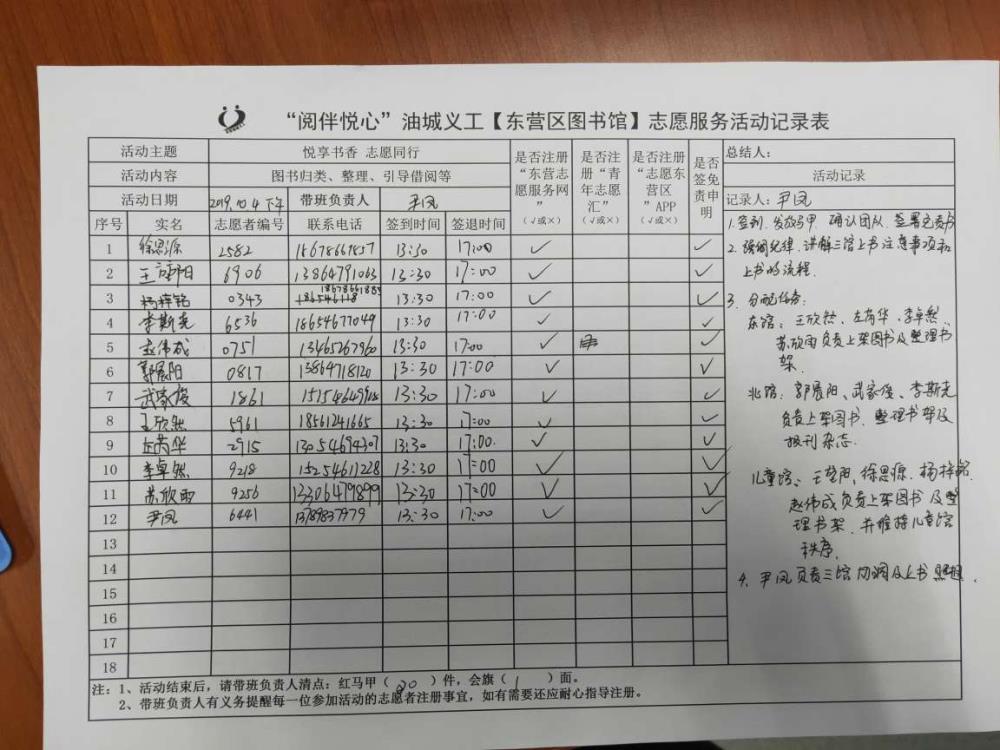 “阅伴悦心”油城义工【东营区图书馆】志愿服务活动记录表
活动主题 悦享书香 志愿同行 是否注册“东营志愿服务网”(√或×) 是否注册“青年志愿汇”(√或×) 是否注册“志愿东营区”APP(√或×) 是否签免责申明 总结人:
活动内容 图书归类、整理、引导借阅等 活动记录
活动日期 2019.10.4下午 带班负责人 尹凤 记录人: 尹凤
序号 实名 志愿者编号 联系电话 签到时间 签退时间
1 徐思源 2582 18678661857 13:30 17:00 √ √
2 王 阳 6906 13864791063 13:30 17:00 √ √
3 杨梓铭 0343 13:30 17:00 √ √
4 李斯尧 6536 18654677049 13:30 17:00 √ √
5 赵伟成 0751 13465267960 13:30 17:00 √ √
6 郭晨阳 0817 13864718120 13:30 17:00 √ √
7 武家俊 1861 13:30 17:00 √ √
8 王欣然 5961 18561241665 13:30 17:00 √ √
9 左芮华 2915 13054694307 13:30 17:00 √ √
10 李卓然 9218 15254611228 13:30 17:00 √ √
11 苏欣雨 9256 13306479899 13:30 17:00 √ √
12 尹凤 6441 13789837979 13:30 17:00 √ √
13
14
15
16
17
18
1.签到.发放马甲.确认团队.签署免责书
2.强调纪律.讲解三馆上书注意事项和
上书的流程.
3.分配任务:
东馆:王欣然、左芮华、李卓然、
苏欣雨负责上架图书及整理书
架.
北馆:郭晨阳、武家俊、李斯尧
负责上架图书、整理书架及
报刊杂志.
儿童馆:王 阳、徐思源、杨梓铭.
赵伟成负责上架图书及整
理书架.并维持儿童馆
秩序.
4.尹凤负责三馆协调及上书照相.
注:1、活动结束后,请带班负责人清点:红马甲(20)件,会旗(1)面。
2、带班负责人有义务提醒每一位参加活动的志愿者注册事宜,如有需要还应耐心指导注册。